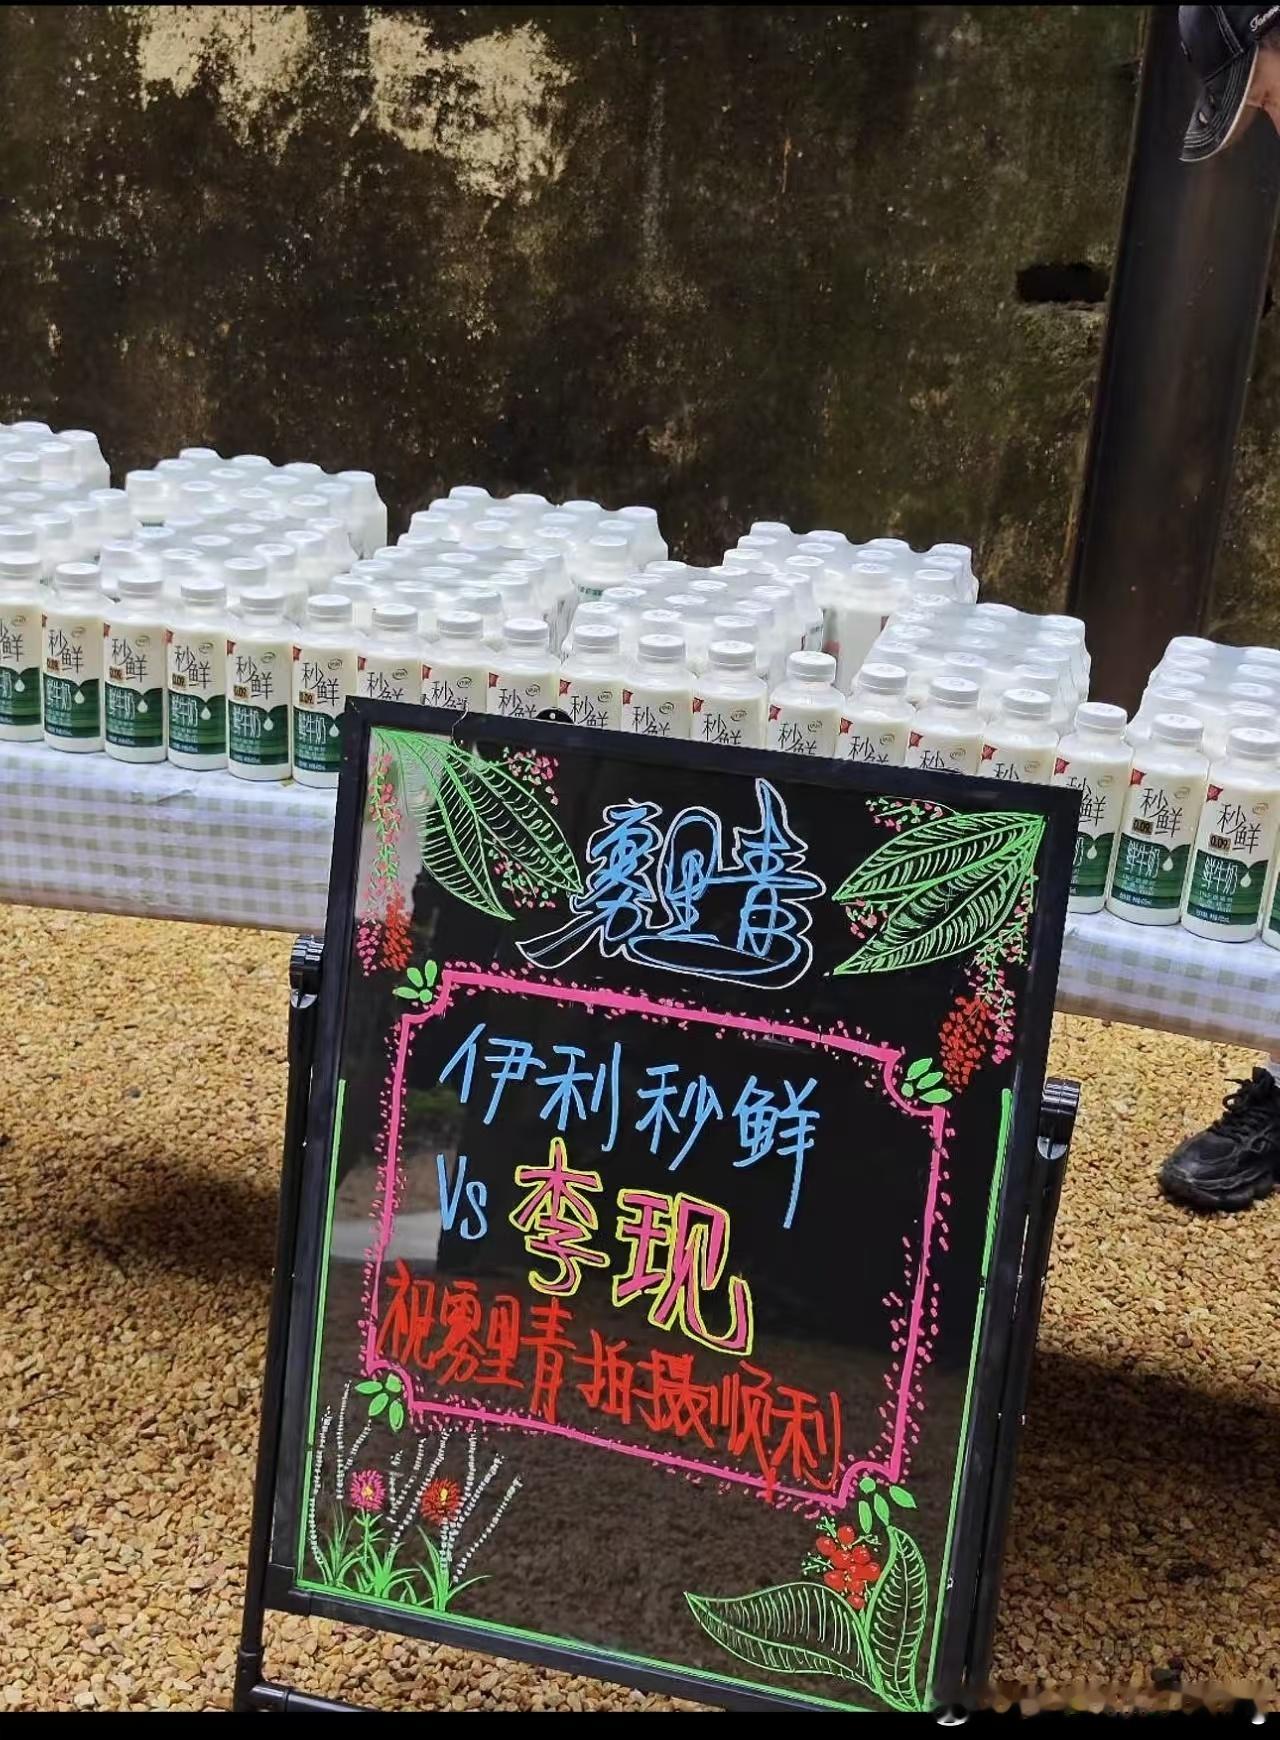 秒鲜
0.09
鲜牛奶
雾里青
伊利秒鲜
Vs 李现
祝雾里青拍摄顺利